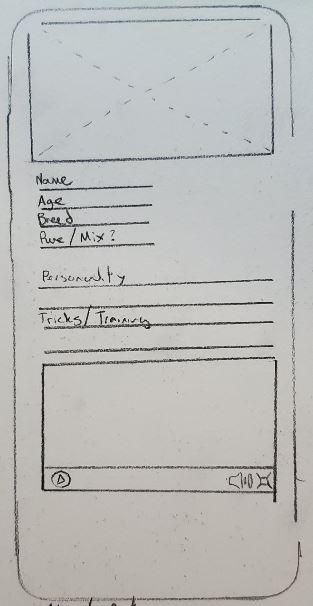 Name
Age
Breed
Pure/Mix?
Personality
Tricks/Training